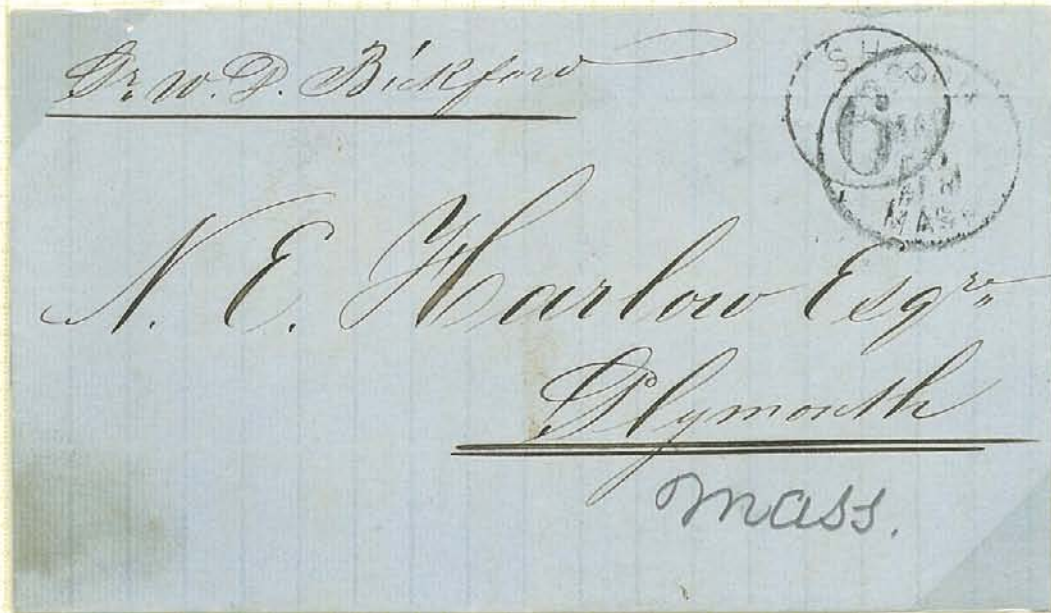 Dr. W. D. Bickford
SHIP
6
MASS
N. E. Harlow Esqre
Plymouth
Mass.